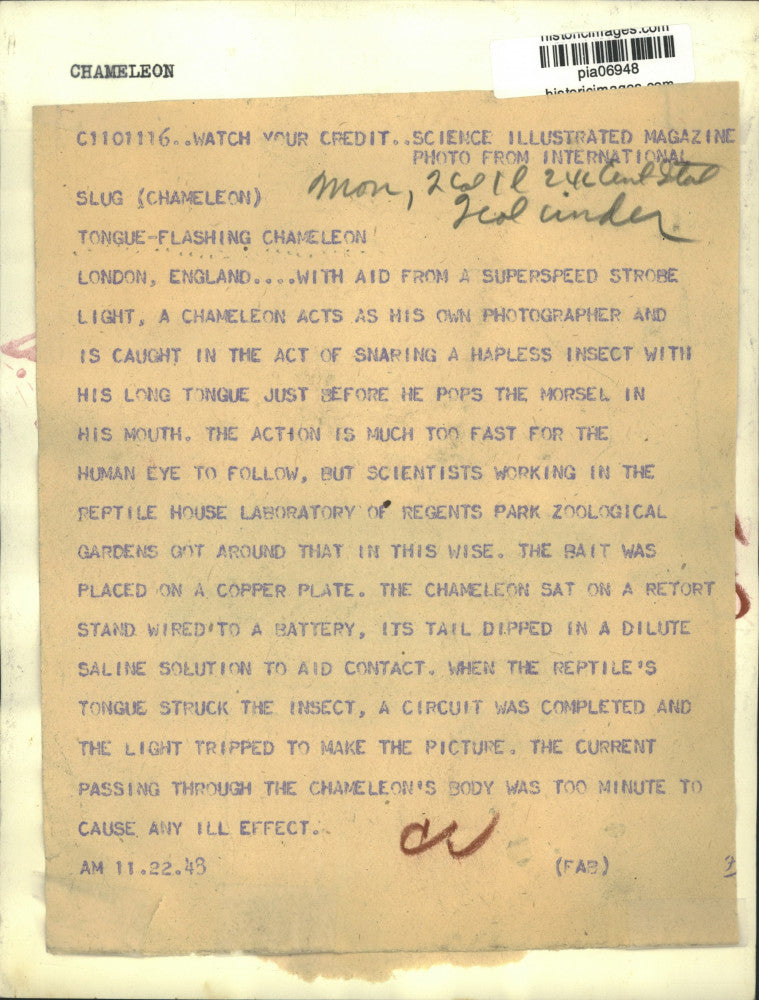 historicimages.com
pia06948
historicimages.com
CHAMELEON
C1101116..WATCH YOUR CREDIT..SCIENCE ILLUSTRATED MAGAZINE
PHOTO FROM INTERNATIONAL
Mon, 2 Col
SLUG (CHAMELEON)
2 col under
TONGUE-FLASHING CHAMELEON
LONDON, ENGLAND....WITH AID FROM A SUPERSPEED STROBE
LIGHT, A CHAMELEON ACTS AS HIS OWN PHOTOGRAPHER AND
IS CAUGHT IN THE ACT OF SNARING A HAPLESS INSECT WITH
HIS LONG TONGUE JUST BEFORE HE POPS THE MORSEL IN
HIS MOUTH. THE ACTION IS MUCH TOO FAST FOR THE
HUMAN EYE TO FOLLOW, BUT SCIENTISTS WORKING IN THE
REPTILE HOUSE LABORATORY OF REGENTS PARK ZOOLOGICAL
GARDENS GOT AROUND THAT IN THIS WISE. THE BAIT WAS
PLACED ON A COPPER PLATE. THE CHAMELEON SAT ON A RETORT
STAND WIRED TO A BATTERY, ITS TAIL DIPPED IN A DILUTE
SALINE SOLUTION TO AID CONTACT. WHEN THE REPTILE'S
TONGUE STRUCK THE INSECT, A CIRCUIT WAS COMPLETED AND
THE LIGHT TRIPPED TO MAKE THE PICTURE. THE CURRENT
PASSING THROUGH THE CHAMELEON'S BODY WAS TOO MINUTE TO
CAUSE ANY ILL EFFECT.
AM 11.22.48 (FAB)